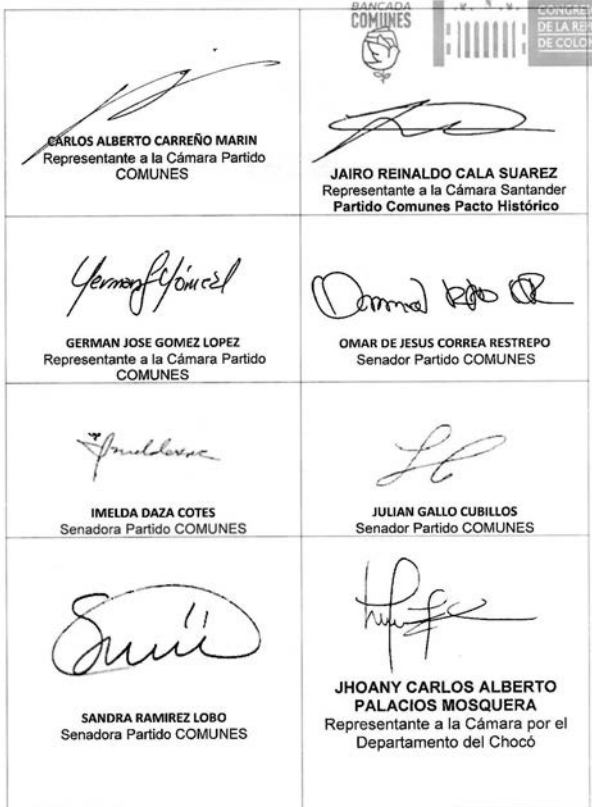 BANCADA
COMUNES
CARLOS ALBERTO CARREÑO MARIN
Representante a la Cámara Partido
COMUNES
JAIRO REINALDO CALA SUAREZ
Representante a la Cámara Santander
Partido Comunes Pacto Histórico
GERMAN JOSE GOMEZ LOPEZ
Representante a la Cámara Partido
COMUNES
OMAR DE JESUS CORREA RESTREPO
Senador Partido COMUNES
IMELDA DAZA COTES
Senadora Partido COMUNES
JULIAN GALLO CUBILLOS
Senador Partido COMUNES
SANDRA RAMIREZ LOBO
Senadora Partido COMUNES
JHOANY CARLOS ALBERTO
PALACIOS MOSQUERA
Representante a la Cámara por el
Departamento del Chocó